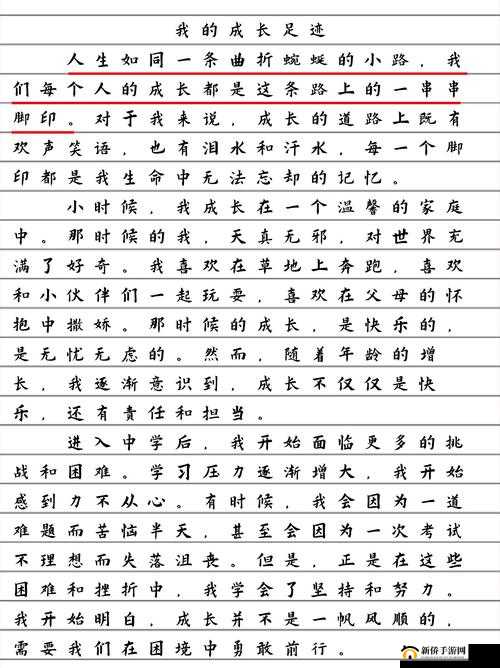 我的成长足迹
人生如同一条曲折蜿蜒的小路，我
们每个人的成长都是这条路上的一串串
脚印。对于我来说，成长的道路上既有
欢声笑语，也有泪水和汗水，每一个脚
印都是我生命中无法忘却的记忆。
小时候，我成长在一个温馨的家庭
中。那时候的我，天真无邪，对世界充
满了好奇。我喜欢在草地上奔跑，喜欢
和小伙伴们一起玩耍，喜欢在父母的怀
抱中撒娇。那时候的成长，是快乐的，
是无忧无虑的。然而，随着年龄的增
长，我逐渐意识到，成长不仅仅是快
乐，还有责任和担当。
进入中学后，我开始面临更多的挑
战和困难。学习压力逐渐增大，我开始
感到力不从心。有时候，我会因为一道
难题而苦恼半天，甚至会因为一次考试
不理想而失落沮丧。但是，正是在这些
困难和挫折中，我学会了坚持和努力。
我开始明白，成长并不是一帆风顺的，
需要我们在困境中勇敢前行。
新侨手游网